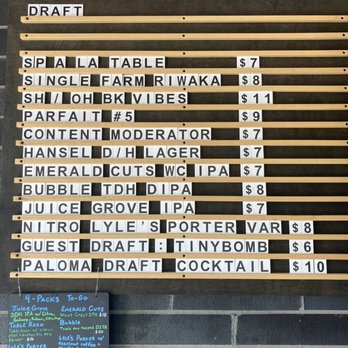 DRAFT
SPA LA TABLE $7
SINGLE FARM RIWAKA $8
SH/OH BK VIBES $11
PARFAIT #5 $9
CONTENT MODERATOR $7
HANSEL D/H LAGER $7
EMERALD CUTS WC IPA $7
BUBBLE TDH DIPA $8
JUICE GROVE IPA $7
NITRO LYLE'S PORTER VAR $8
GUEST DRAFT: TINYBOMB $6
PALOMA DRAFT COCKTAIL $10
4-PACKS TO-GO
Juice Grove
Emerald Cuts
Bubble
Lyle's Porter